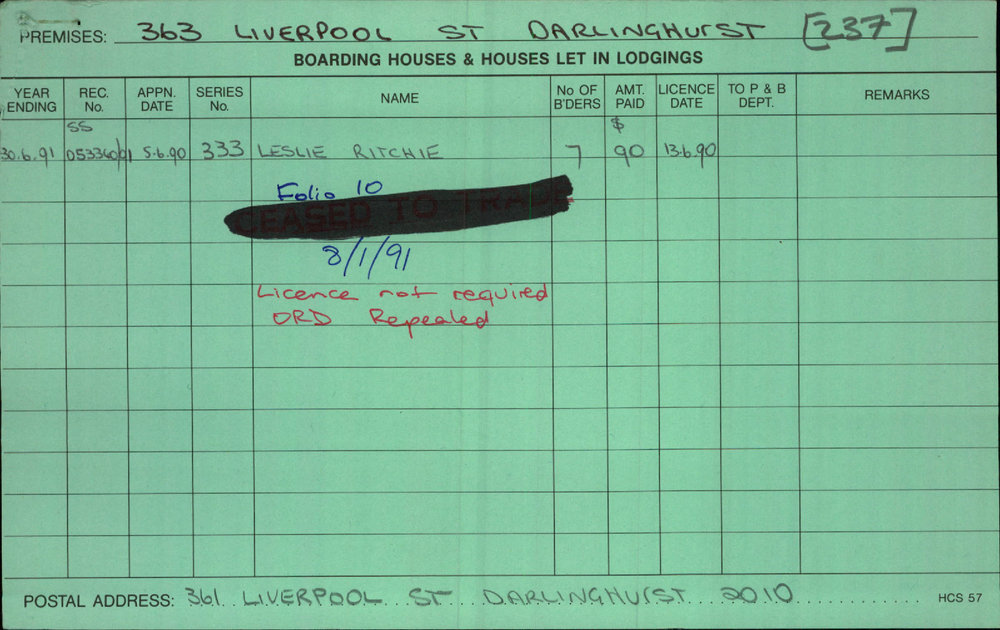 PREMISES: 363 LIVERPOOL ST DARLINGHURST [237]
BOARDING HOUSES & HOUSES LET IN LODGINGS
YEAR ENDING REC. No. APPN. DATE SERIES No. NAME No OF B'DERS AMT. PAID LICENCE DATE TO P & B DEPT. REMARKS
SS $
30.6.91 5.6.90 333 LESLIE RITCHIE 7 90 13.6.90
Folio 10
CEASED TO TRADE
8/1/91
Licence not required
ORD Repealed
POSTAL ADDRESS: 361 LIVERPOOL ST DARLINGHURST 2010 HCS 57